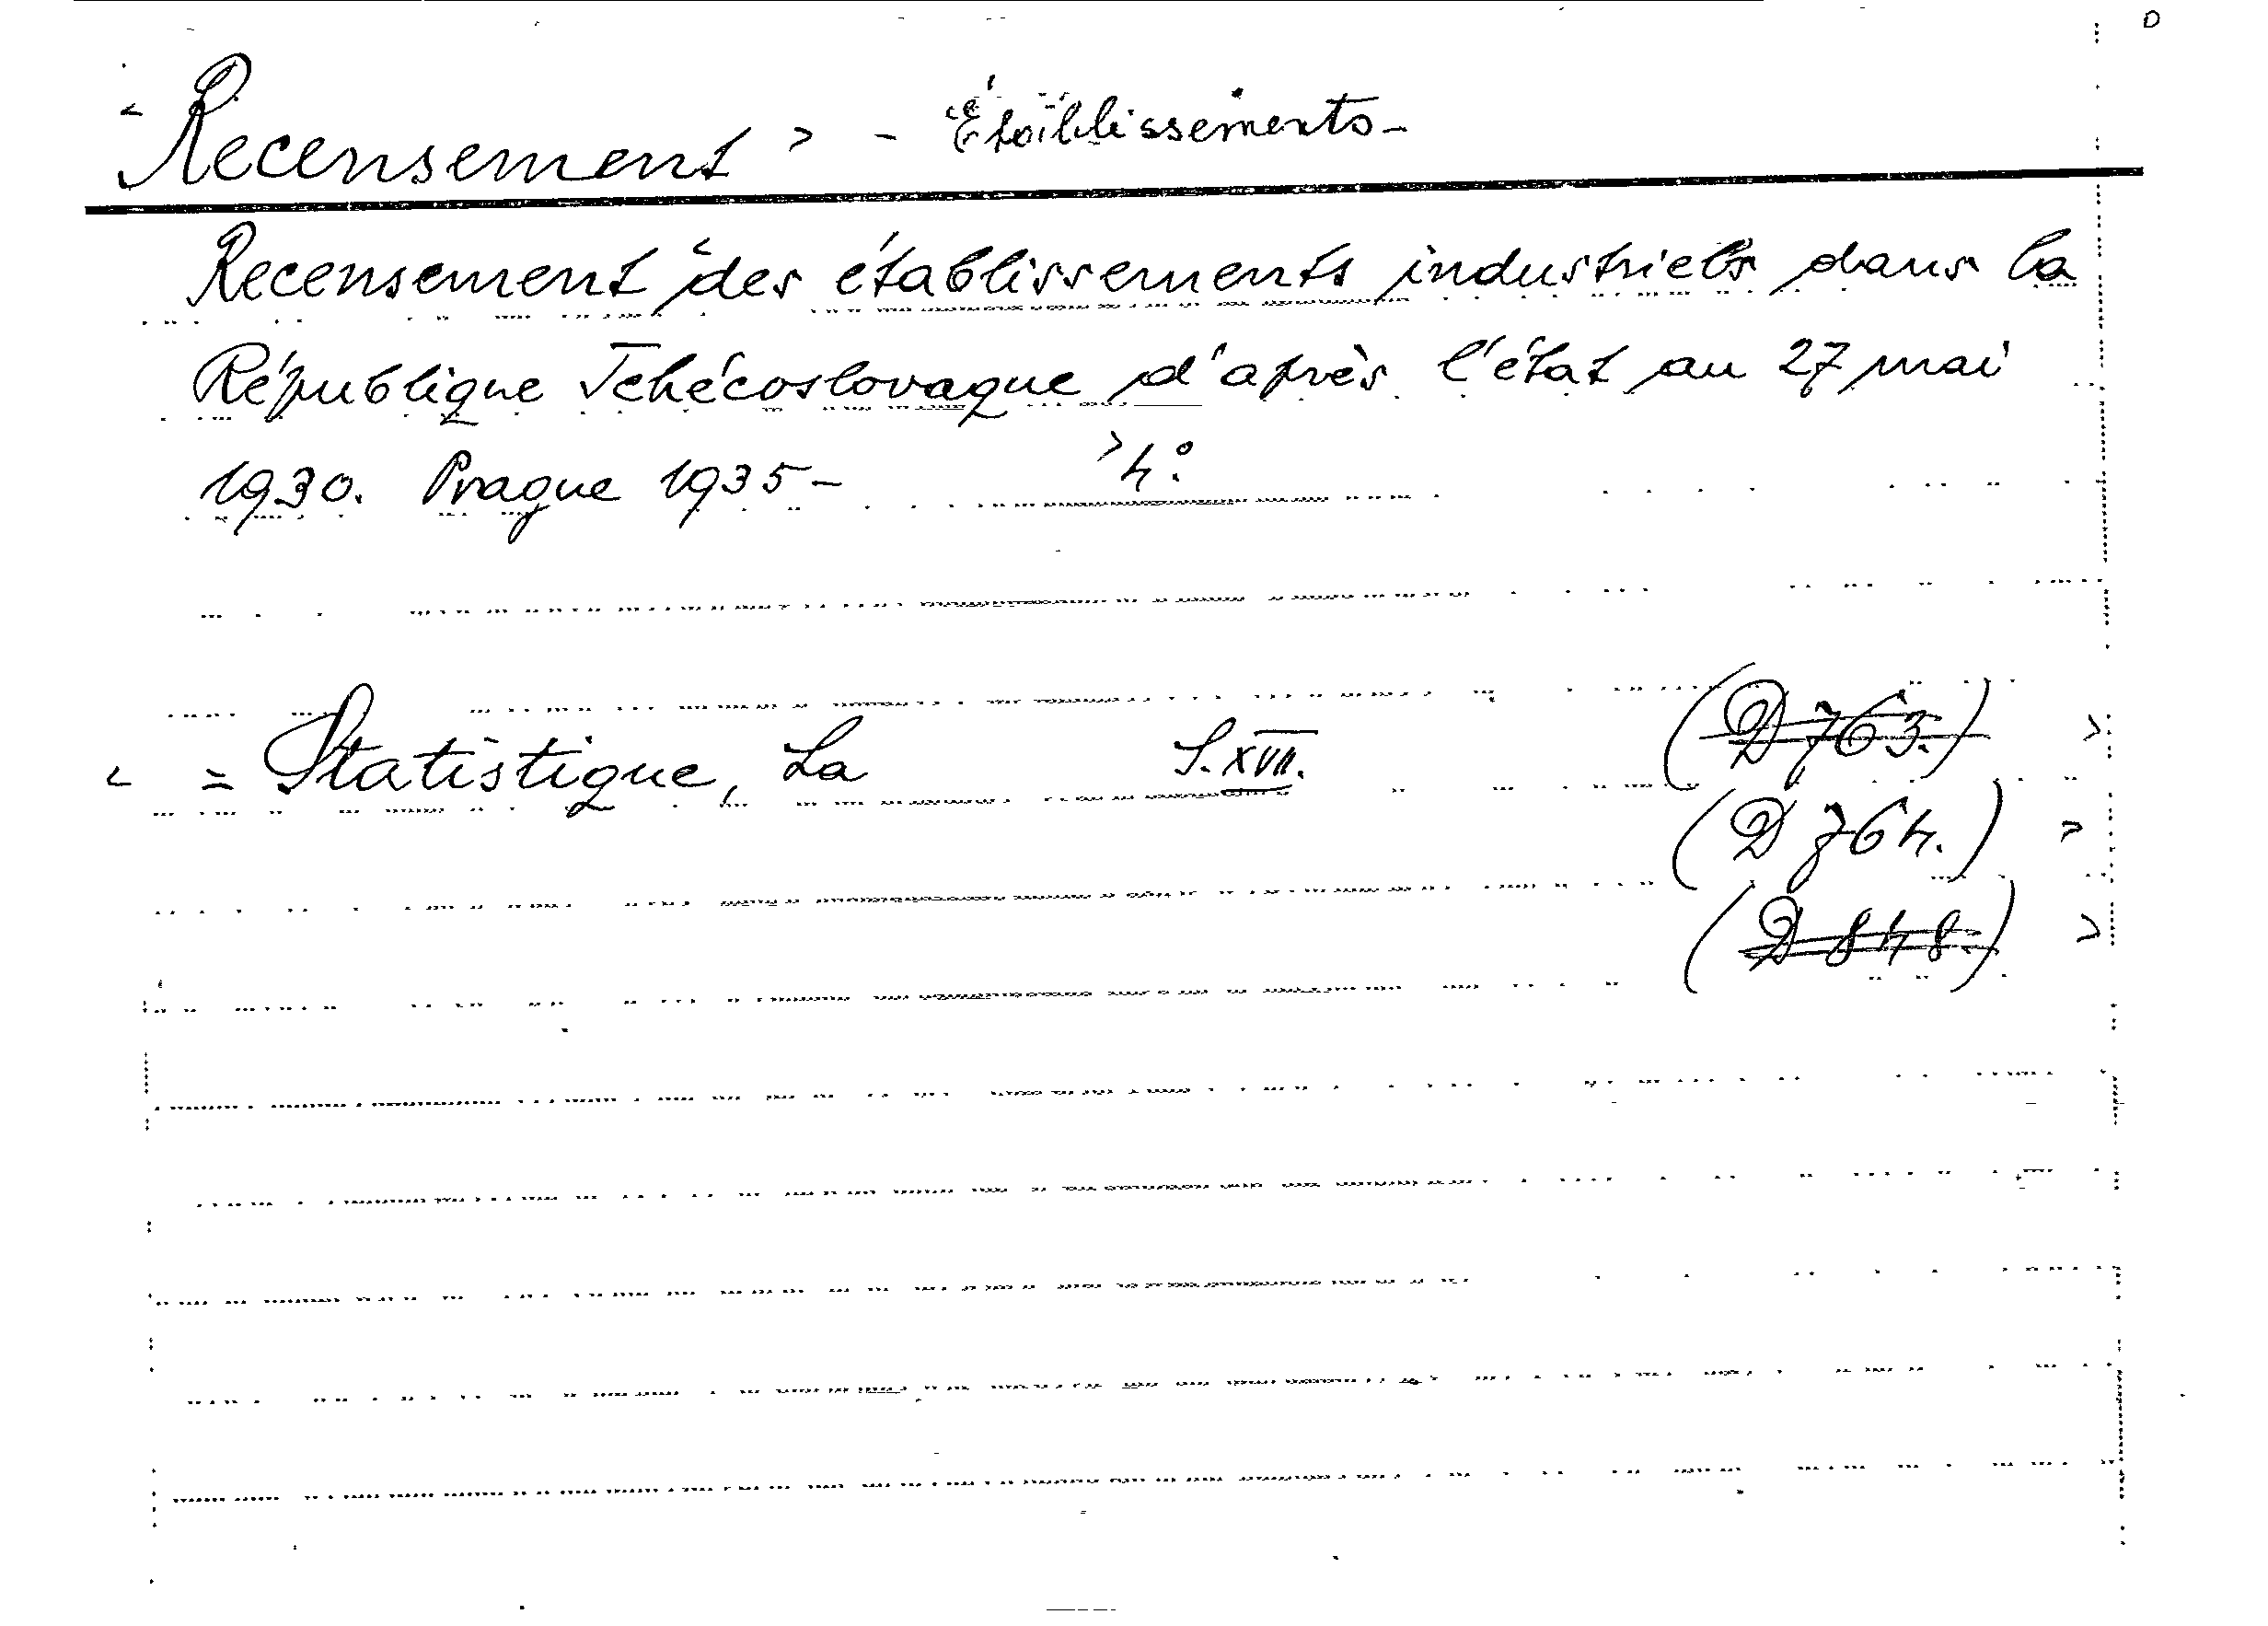 Recensement - Établissements -
Recensement des établissements industriels dans la
République Tchécoslovaque d'après l'état au 27 mai
1930. Prague 1935 - 4°.
= Statistique, La S. XVII. (D 763.)
(D 764.)
(D 848.)